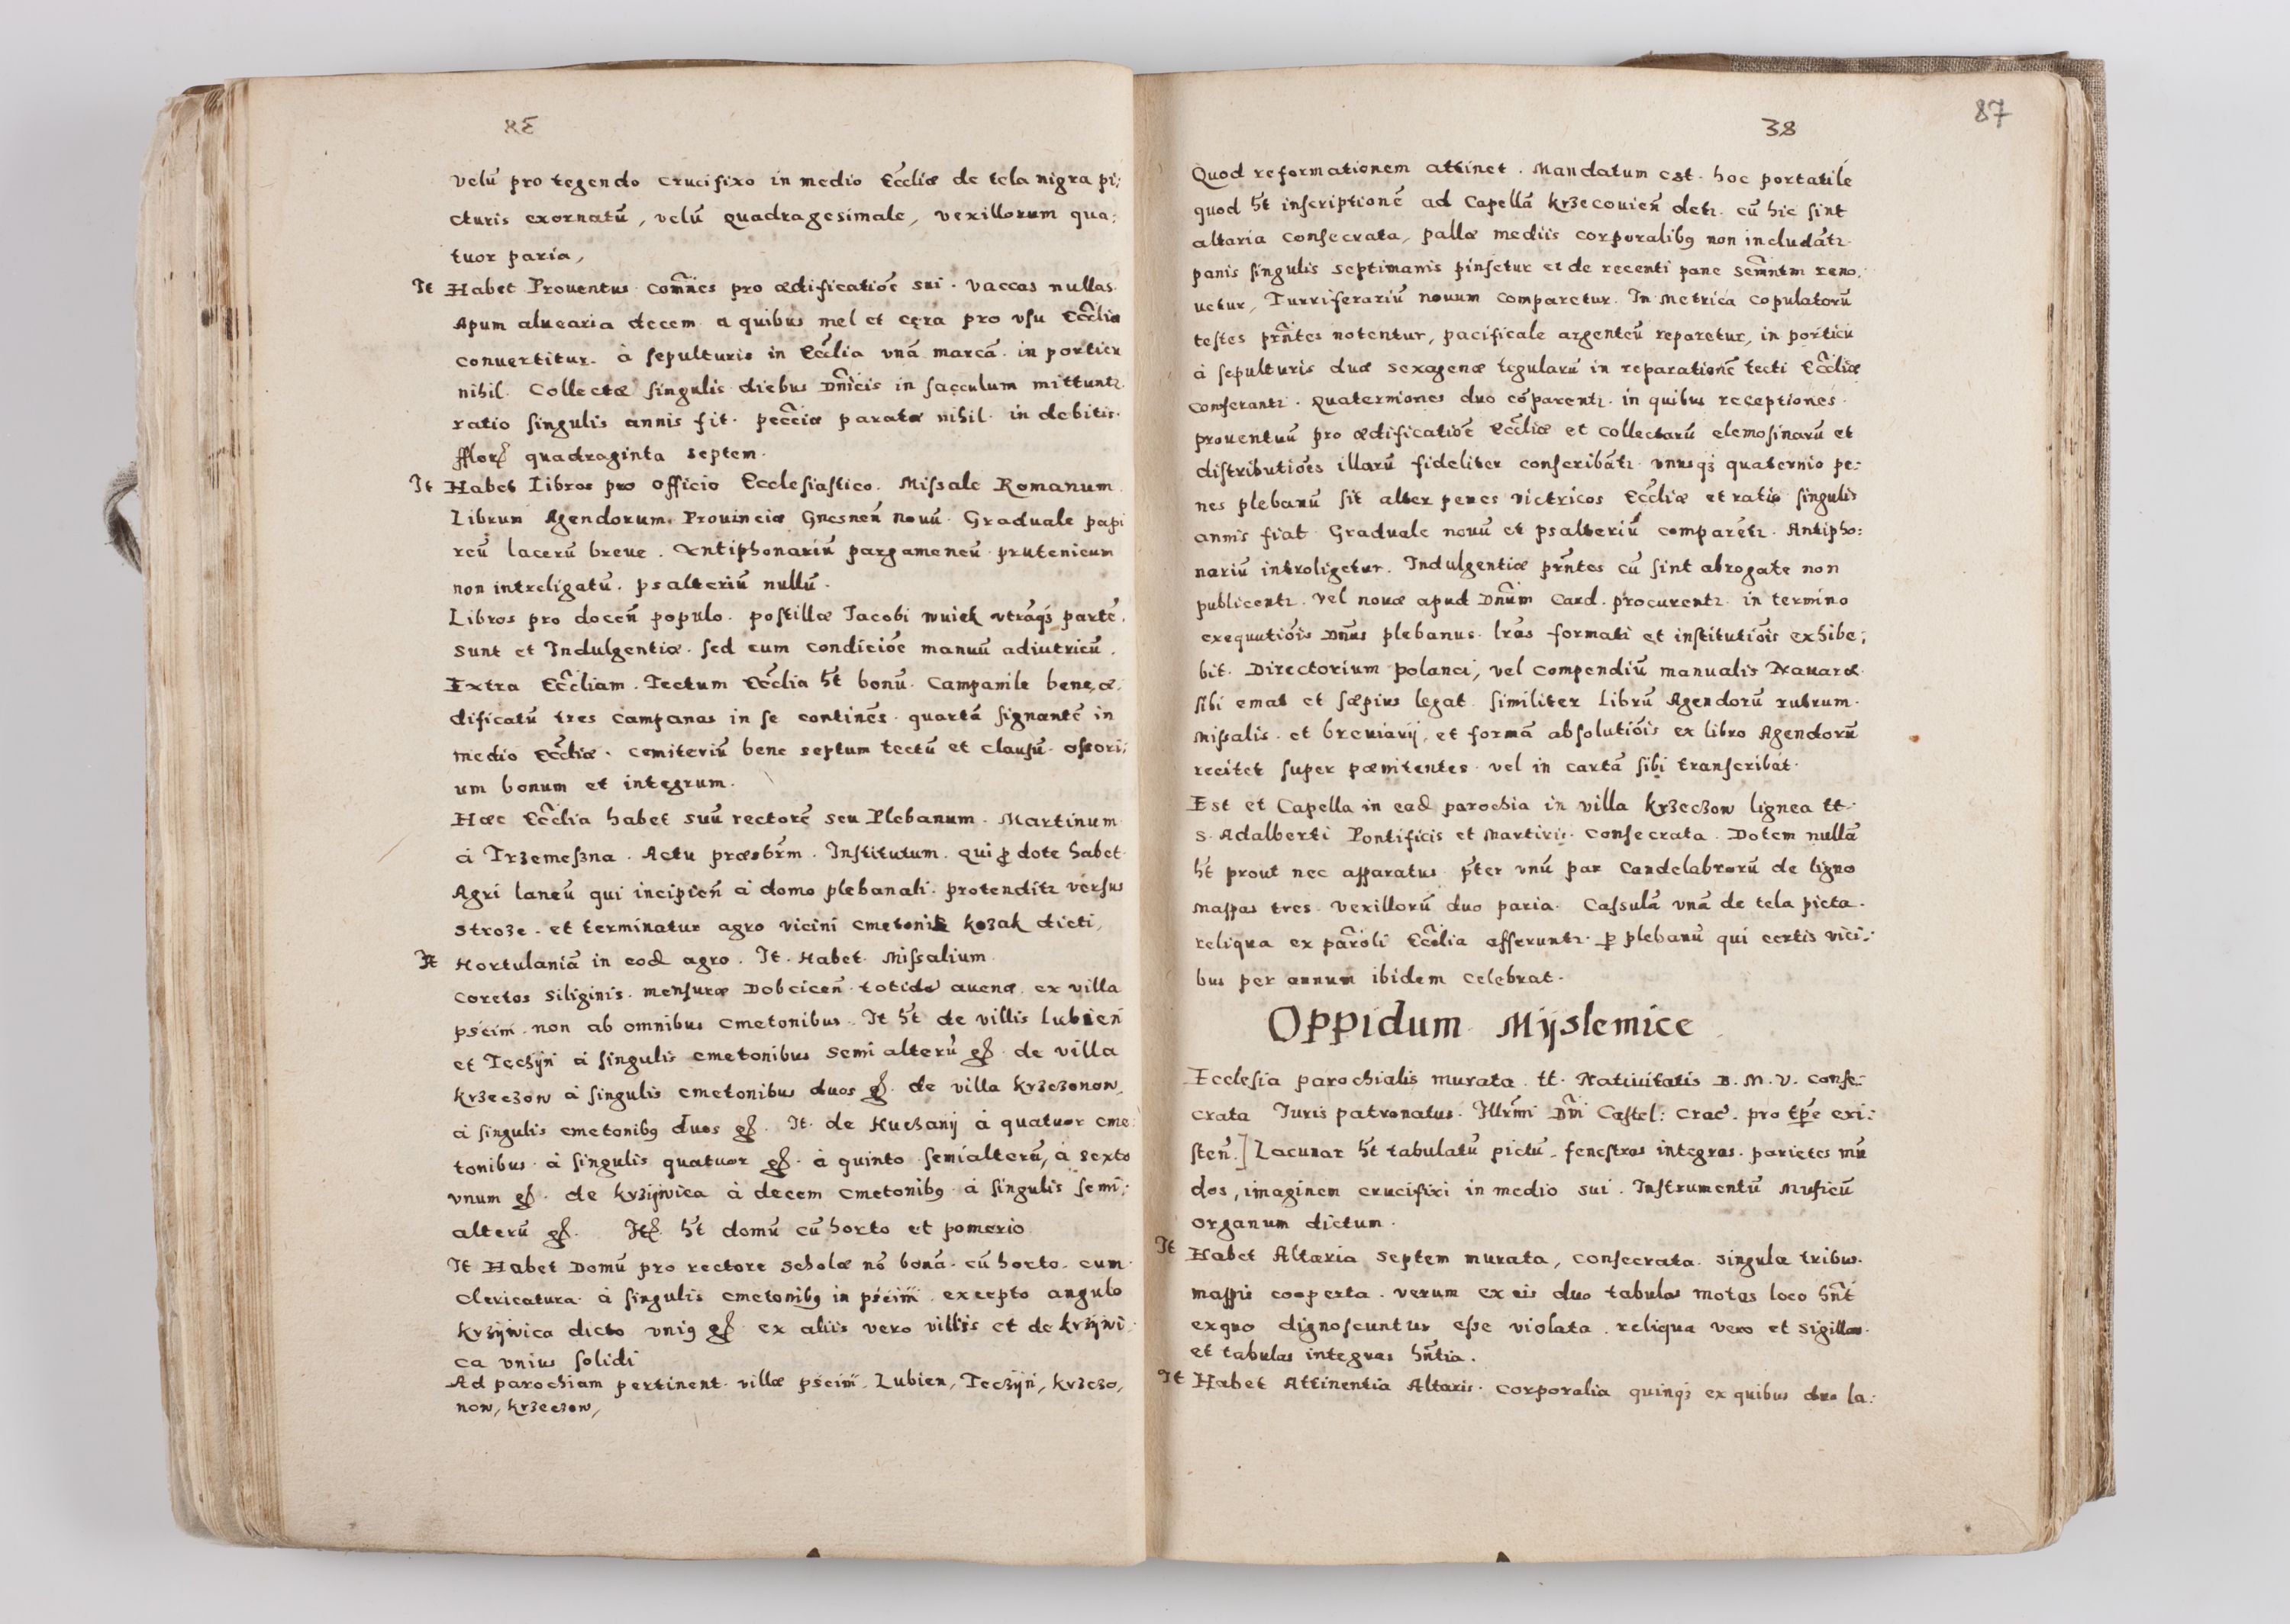 velū pro tegendo crucifixo in medio Eccliæ de tela nigra pi:
cturis exornatū, velū quadragesimale, vexillorum qua:
tuor paria,
It Habet Prouentus com̃nes pro ædificatiōe sui. vaccas nullas.
Apum aluearia decem a quibus mel et cera pro vsu Eccliæ
conuertitur. à sepulturis in Ecclia vnā marcā. in porticu
nihil. Collectæ singulis diebus Dñicis in sacculum mittuntr
ratio singulis annis fit. pecc̃iæ paratæ nihil. in debitis.
fflor quadraginta septem.
It Habet Libros pro officio Ecclesiastico. Missale Romanum
Librum Agendorum Prouinciæ Gnesneñ nouū. Graduale papi
reū lacerū breue. Antiphonariū pargameneū prutenicum
non intreligatū. psalteriū nullū.
Libros pro doceñ populo. postillæ Jacobi wuiek vtrāqʒ partē.
sunt et Indulgentiæ. sed cum condiciōe manuū adiutricū.
Extra Eccliam. Tectum Ecclia ht̄ bonū. Campanile bene, æ:
dificatū tres campanas in se continēs. quartā signantē in
medio Eccliæ. cemiteriū bene septum tectū et clausū. ossori:
um bonum et integrum.
Hæc Ecclia habet suū rectorē seu Plebanum. Martinum
à Trzemeszna. Actu præsbr̃m. Institutum. qui ꝓ dote habet
Agri laneū qui incipieñ à domo plebanali. protenditr versus
Stroze. et terminatur agro vicini cmetonis kozak dicti,
It Hortulaniā in eod agro. It. Habet. Missalium.
coretos siliginis. mensuræ Dobciceñ. totidē auenæ. ex villa
pścim. non ab omnibus cmetonibus. It ht̄ de villis Lubień
et Tęczyń à singulis cmetonibus semi alterū gſ. de villa
krzeczow à singulis cmetonibus duos gſ. de villa krzczonow
à singulis cmetonibꝯ duos gſ. It. de Huczanij à quatuor cme:
tonibus. à singulis quatuor gſ. à quinto semialterū, à sexto
vnum gſ. de krzijwica à decem cmetonibꝯ à singulis semi:
alterū gſ. It. ht̄ domū cū horto et pomerio
It Habet Domū pro rectore scholæ nō bonā. cū horto. cum.
Clericatura. à singulis cmetonibꝯ in pścim. excepto angulo
krzijwica dicto vniꝯ gſ. ex aliis vero villis et de krzijwi:
ca vnius solidi
Ad parochiam pertinent. villæ pścim, Lubien, Teczijń, krzczo,
now, krzeczow,
38
87
Quod reformationem attinet. Mandatum est. hoc portatile
quod ht̄ inscriptionē ad Capellā krzecouień detr. cū hic sint
altaria consecrata, pallæ mediis corporalibꝯ non includātr.
panis singulis septimanis pinsetur et de recenti pane sem̃ntm reno:
uetur, Turriferariū nouum comparetur. In Metrica copulatorū
testes pr̃ntes notentur, pacificale argenteū reparetur, in porticu
à sepulturis duæ sexagenæ tegularū in reparationē tecti Eccliæ
conferantr. Quaterniones duo cōparentr. in quibus receptiones.
prouentuū pro ædificatiōe Eccliæ et collectarū elemosinarū et
distributiōes illarū fideliter conscribātr. vnusqʒ quaternio pe:
nes plebanū sit alter penes victricos Eccliæ et ratio singulis
annis fiat. Graduale nouū et psalteriū comparētr. Antipho:
nariū introligetur. Indulgentiæ pr̃ntes cū sint abrogate non
publicentr. vel nouæ apud Dnūm Card. procurentr. in termino
exequutiōis Dñus plebanus. lr̃as formati et institutiōis exhibe:
bit. Directorium Polanci, vel compendiū manualis Nauaræ
sibi emat et sæpius legat. similiter Librū Agendorū rubrum.
Missalis. et breuiarij, et formā absolutiōis ex libro Agendorū
recitet super pœnitentes. vel in cartā sibi transcribat.
Est et Capella in ead parochia in villa krzeczow lignea tt.
S. Adalberti Pontificis et Martiris. consecrata. Dotem nullā
ht̄ prout nec apparatus. p̄ter vnū par Candelabrorū de ligno
mappas tres. vexillorū duo paria. Casulā vnā de tela picta.
reliqua ex par̃oli Ecclia afferuntr. ꝑ plebanū qui certis vici:
bus per annum ibidem celebrat.
Oppidum Mijslemice
Ecclesia parochialis murata. tt. Natiuitatis B. M. V. conse:
crata Juris patronatus. Illr̃mi Dñi Castel: Crac̄. pro tp̄e exi:
steñ.] Lacunar ht̄ tabulatū pictū. fenestras integras. parietes mū
dos, imaginem crucifixi in medio sui. Instrumentū Musicū
organum dictum.
It Habet Altaria septem murata, consecrata. singula tribus.
mappis cooperta. verum ex eis duo tabulas motas loco hñt
ex quo dignoscuntur esse violata. reliqua vero et sigillas.
et tabulas integras hñtia.
It Habet Attinentia Altaris. corporalia quinqʒ ex quibus duo la: